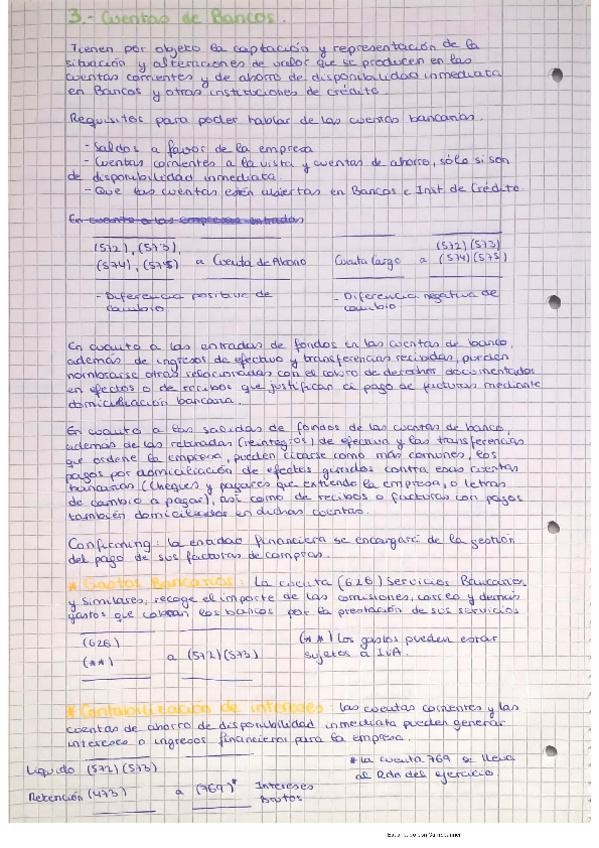 3.- Cuentas de Bancos.
Tienen por objeto la captación y representación de la
situación y alteraciones de valor que se producen en las
cuentas corrientes y de ahorro de disponibilidad inmediata
en Bancos y otras instituciones de crédito.
Requisitos para poder hablar de las cuentas bancarias.
- Saldos a favor de la empresa
- Cuentas corrientes a la vista y cuentas de ahorro, sólo si son
de disponibilidad inmediata.
- Que las cuentas estén abiertas en Bancos e Inst. de Crédito.
En cuanto a las empresas entradas
(572), (573), (572) (573)
(574), (575) a Cuenta de Abono Cuenta Cargo a (574) (575)
- Diferencia positiva de - Diferencia negativa de
cambio cambio
En cuanto a las entradas de fondos en las cuentas de banco,
además de ingresos de efectivo y transferencias recibidas, pueden
nombrarse otras relacionadas con el cobro de derechos documentados
en efectos o de recibos que justifican el pago de facturas mediante
domiciliación bancaria.
En cuanto a las salidas de fondos de las cuentas de banco,
además de las retiradas (reintegros) de efectivo y las transferencias
que ordene la empresa, pueden citarse como más comunes, los
pagos por domiciliación de efectos girados contra esas cuentas
bancarias (cheques y pagarés que extiende la empresa, o letras
de cambio a pagar), así como de recibos o facturas con pagos
también domiciliados en dichas cuentas.
Confirming: la entidad financiera se encargará de la gestión
del pago de sus facturas de compras.
* Gastos Bancarios: La cuenta (626) Servicios Bancarios
y similares, recoge el importe de las comisiones, correo y demás
gastos que cobran los bancos por la prestación de sus servicios
(626) (**) Los gastos pueden estar
(**) a (572) (573) sujetos a IVA.
* Contabilización de intereses: las cuentas corrientes y las
cuentas de ahorro de disponibilidad inmediata pueden generar
intereses o ingresos financieros para la empresa.
Líquido (572) (573) * la cuenta 769 se lleva
al Rdo del ejercicio.
Retención (473) a (769)* Intereses
Brutos